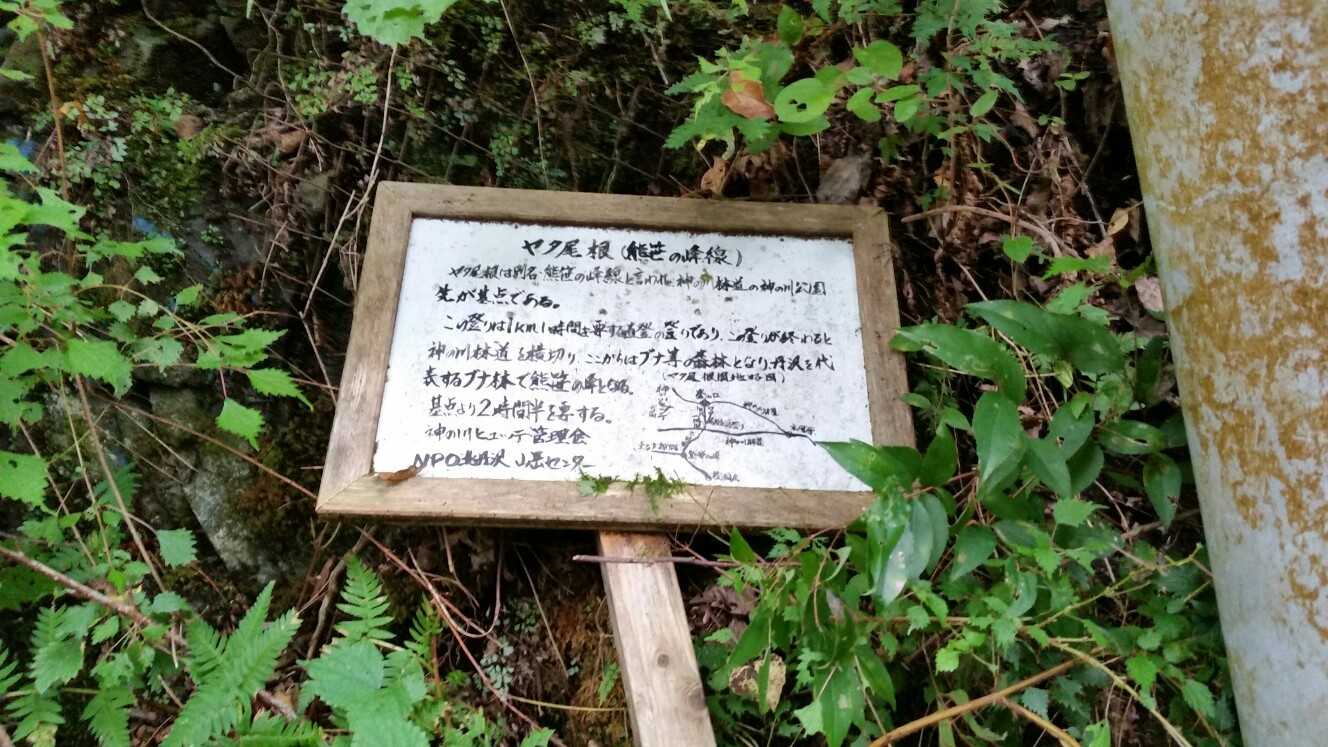 ヤタ尾根(熊笹の峰線)
ヤタ尾根は別名・熊笹の峰線と言われ神の川林道の神の川公園
先が基点である。
この登りは1km1時間を要する直登の登りであり、この登りが終わると
神の川林道を横切り、ここからはブナ等の森林となり丹沢を代
表するブナ林で熊笹の峰となる。
基点より2時間半を要する。
神の川ヒュッテ管理会
NPO北丹沢山岳センター
(ヤタ尾根図地略図)
神の川林道